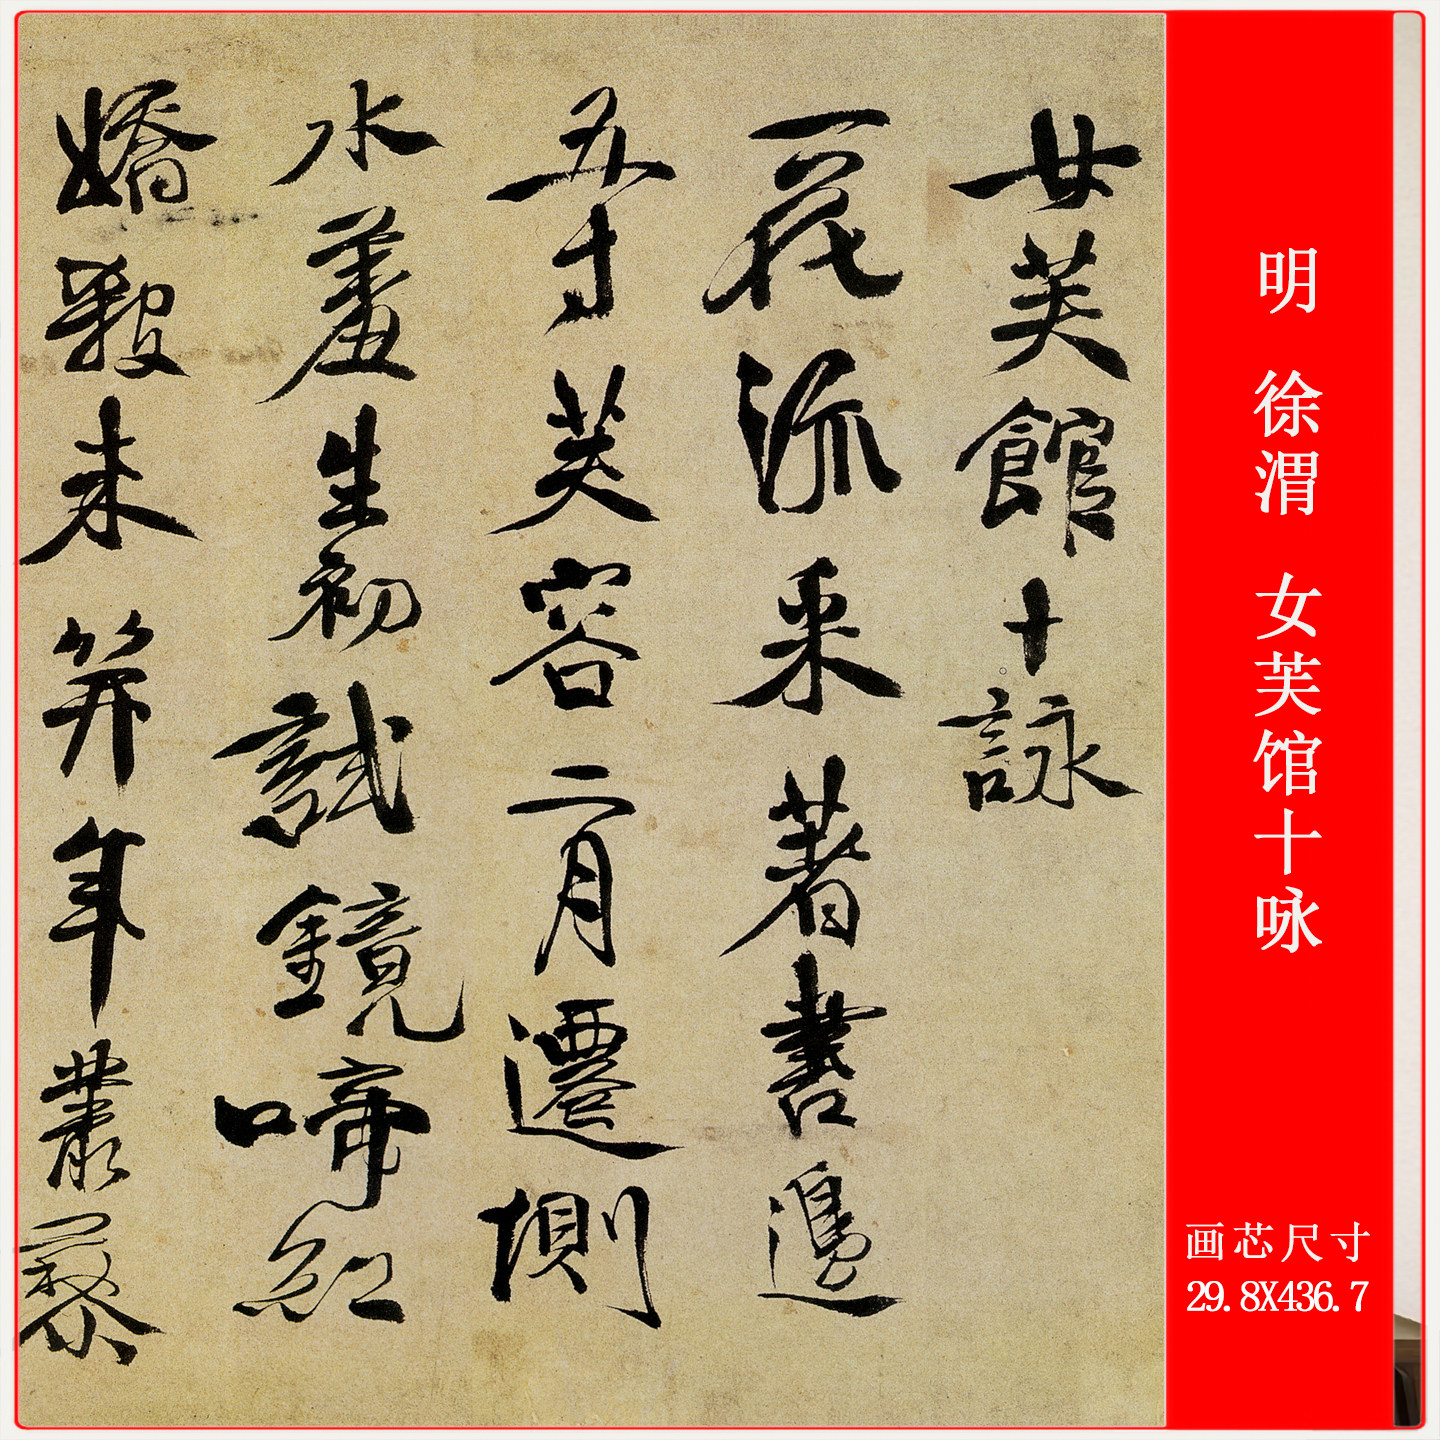 女芙館十詠
一花流采著書邊
五寸芙容二月遷側
水羞生初試鏡啼紅
嬌殺未笄年叢藜
明 徐渭 女芙馆十咏
画芯尺寸
29.8X436.7